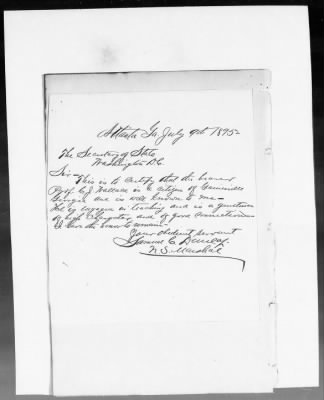 Atlanta Ga July 9th 1895
The Secretary of State
Washington D.C.
Sir This is to certify that the bearer
Prof. C. J. Wallace is a citizen of Gainesville
Georgia and is well known to me
He is engaged in teaching and is a gentleman
of high character, and of good connections
I have the honor to remain
Your obedient servant
Samuel C. Dunlap
U.S. Marshal